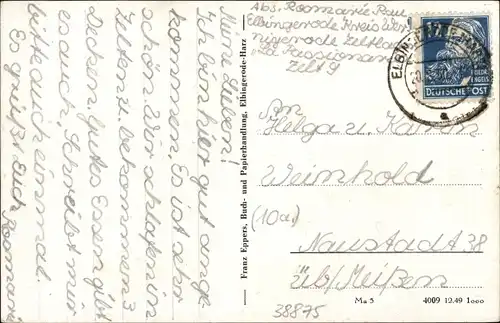 Meine Lieben!
Ich bin hier gut ange-
kommen. Es ist sehr
schön. Wir schlafen in
Zelten u. bekommen 3
Decken. Gutes Essen gibt
es auch. Schreibt mir
bitte auch einmal.
Es grüßt Euch
Rosmarie
Franz Eppers, Buch- und Papierhandlung, Elbingerode-Harz
Abs. Rosmarie
Elbingerode Kreis Wer-
nigerode Zeltla
Zelt 9
DEUTSCHE POST
An
Helga u. Karin
Weinhold
(10a)
Naustadt 38
üb/Meißen
38875
Ma 5 4009 12.49 1000